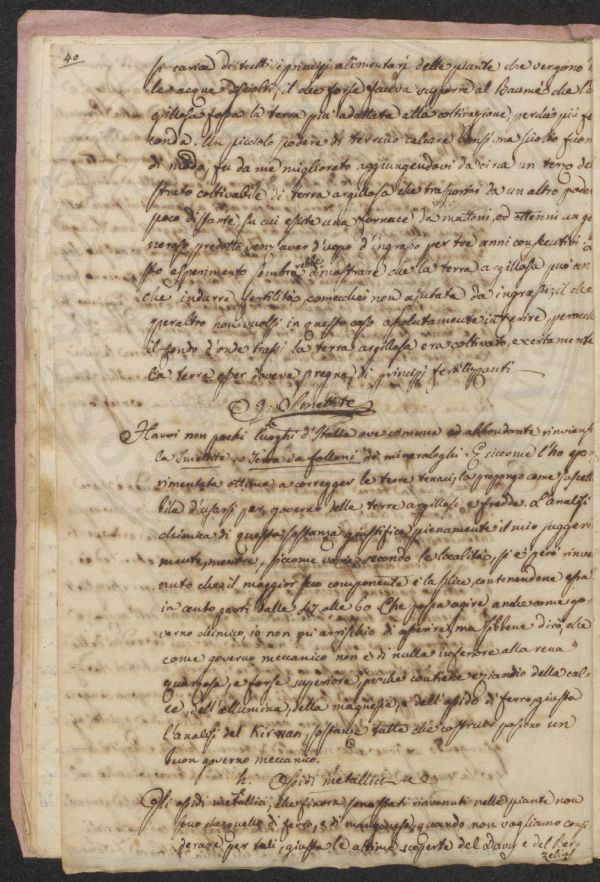 40
si carica di tutti i principj alimentari delle piante che vengono
le acque disciolti; il che forse faceva supporre al Baumé che l'ar
gillosa fosse la terra più adattata alla coltivazione, perchè più fe
conda. Un picciolo podere di terreno calcare bensì, ma sciolto fuor
di modo, fu da me migliorato aggiungendovi da circa un terzo de
strato coltivabile di terra argillosa che trasportai da un altro pode
poco distante, su cui esiste una fornace da mattoni, ed ottenni un ge
neroso prodotto senz'aver d'uopo d'ingrasso per tre anni consecutivi.
sto esperimento sembrerebbe dimostrare che la terra argillosa può an
che indurre fertilità comecchè non ajutata da ingrassi; il che
peraltro non vuolsi in questo caso assolutamente inferire, perocchè
il fondo d'onde trassi la terra argillosa era coltivato, e certamente
la terra esser doveva pregna di principj fertilizzanti.
g. Smettite
Havvi non pochi luoghi d'Italia ove comune ed abbondante rinviensi
la Smettite, o Terra da folloni di mineraloghi. E siccome l'ho spe
rimentata ottima a correggere le terre tenaci, la propongo come suscetti
bile d'usarsi per governo delle terre argillose, e fredde. L'analisi
chimica di questa sostanza giustifica pienamente il mio suggeri
mento, mentre, siccome varia secondo le località, si è però rinve
nuto che il maggior suo componente è la silice, contenendone essa
in cento parti dalle 47 alle 60. Che possa agire anche come go
verno chimico, io non mi arrischio di asserire, ma sibbene dirò, che
come governo meccanico non è di nulla inferiore alla rena
quarzosa, e forse superiore, perchè contiene eziandio della cal
ce, dell'allumina, della magnesia, e dell'ossido di ferro, giusta
l'analisi del Kirwan, sostanze tutte che costruir possono un
buon governo meccanico.
h. Ossidi metallici
Gli ossidi metallici, che finora sono stati rinvenuti nelle piante non
sono che quelli di ferro, e di manganese, quando non vogliano consi
derare per tali, giusta le ultime scoperte del Davy e del Ber
zelius